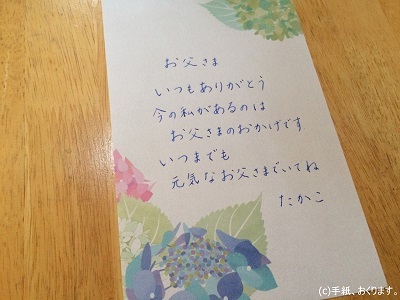 お父さま
いつもありがとう
今の私があるのは
お父さまのおかげです
いつまでも
元気なお父さまでいてね
たかこ
(c)手紙、おくります。